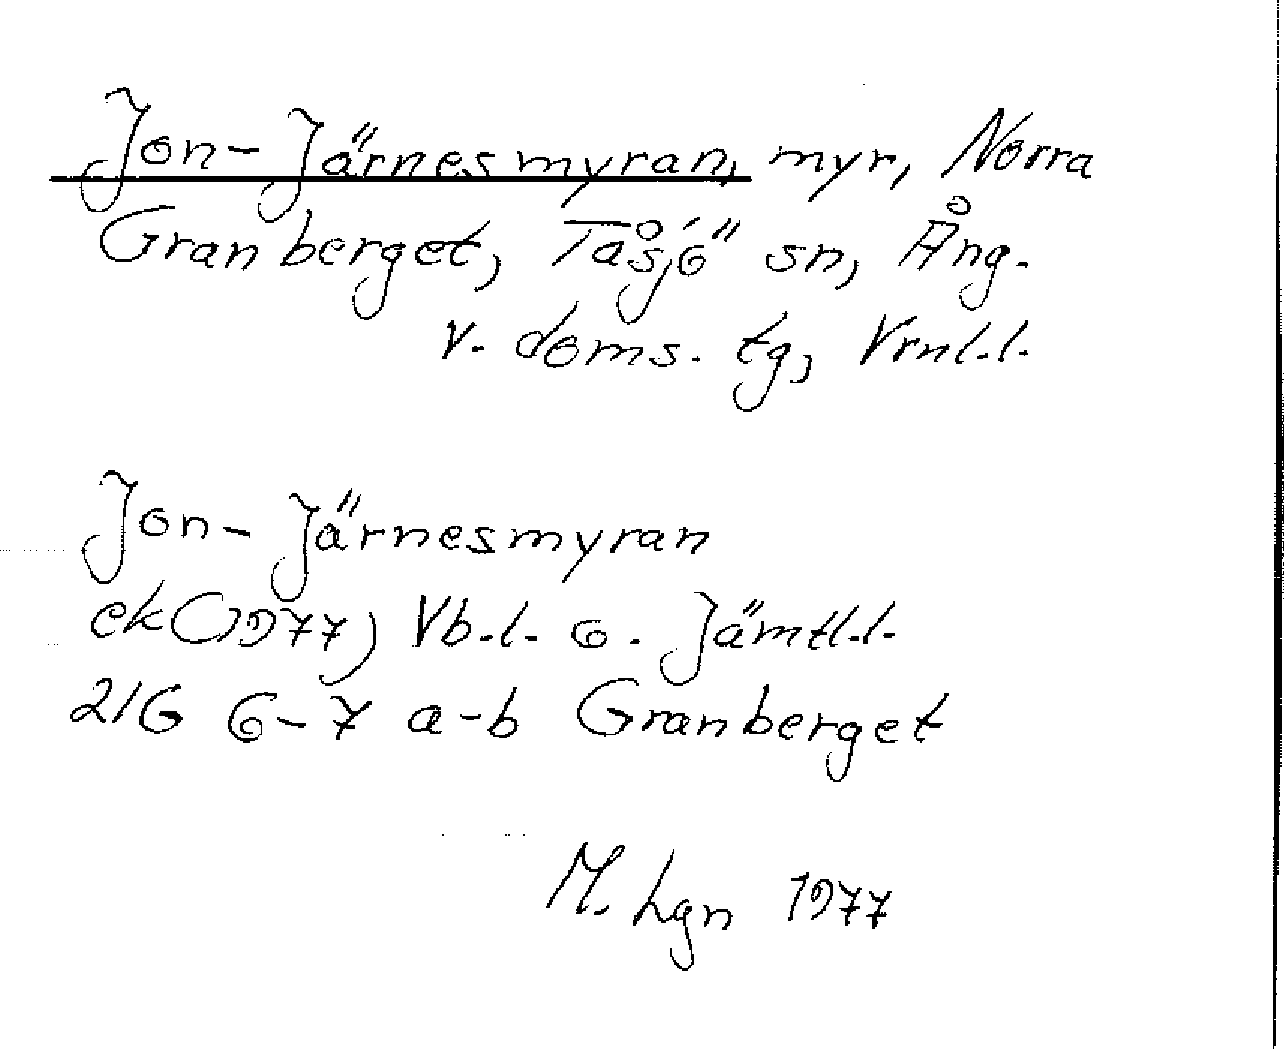 Jon-Järnesmyran, myr, Norra
Granberget, Tåsjö sn, Ång.
V. doms. tg, Vrnl.l.
Jon-Järnesmyran
ek(1977) Vb.l. o. Jämtl.l.
21G 6-7 a-b Granberget
M. Lgn 1977